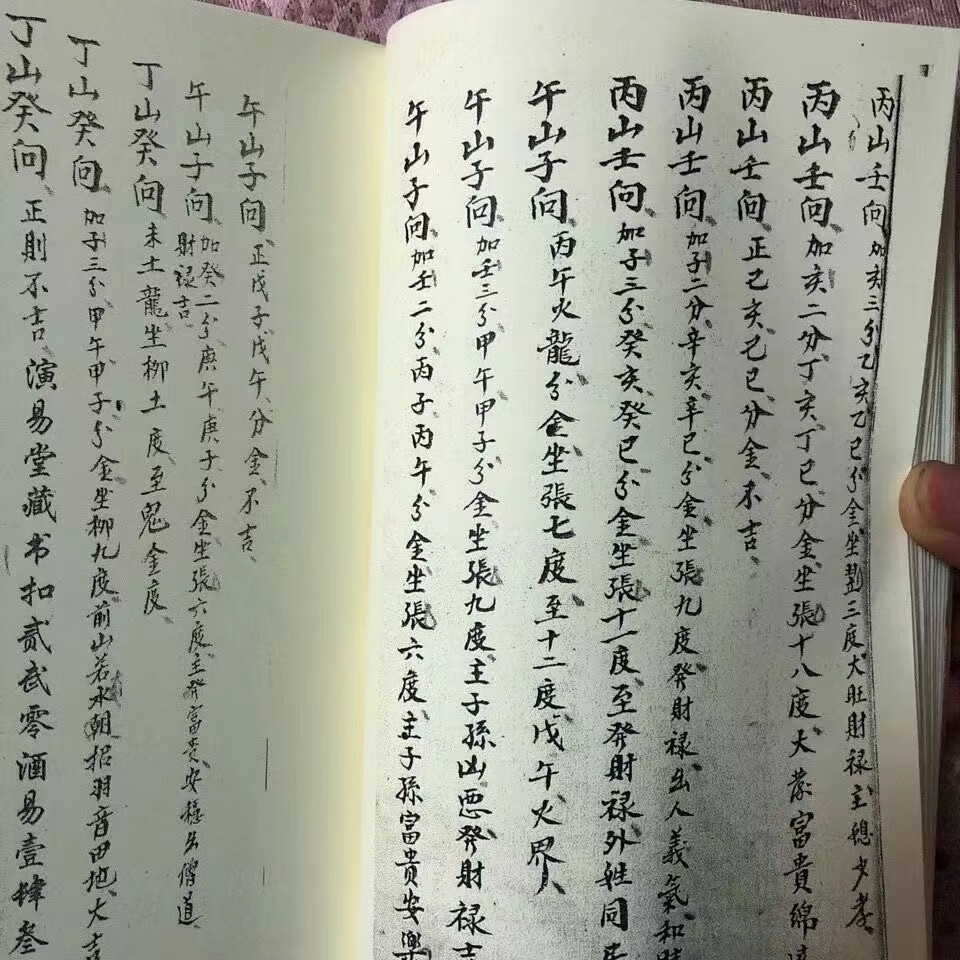 丙山壬向加亥三分乙亥乙巳分金坐翌三度大旺財禄主聰少孝
丙山壬向加亥二分丁亥丁巳分金坐張十八度大發富貴綿
丙山壬向正己亥己巳分金不吉
丙山壬向加子二分辛亥辛巳分金坐張九度發財禄出人義氣和
丙山壬向加子三分癸亥癸巳分金坐張十一度至發財禄外姓同
午山子向丙午火龍分金坐張七度至十二度戊午火界
午山子向加壬三分甲午甲子分金坐張九度主子孫凶惡發財禄吉
午山子向加壬二分丙子丙午分金坐張六度主子孫富貴安樂
午山子向正戊子戊午分金不吉
午山子向加癸二分庚午庚子分金坐張六度主發富貴安穩出僧道
財禄吉
丁山癸向未土龍坐柳土度至鬼金度
丁山癸向加子三分甲午甲子分金坐柳九度前山若水朝招羽音田地大吉
丁山癸向正則不吉演易堂藏书扣贰贰零酒易壹肆叁